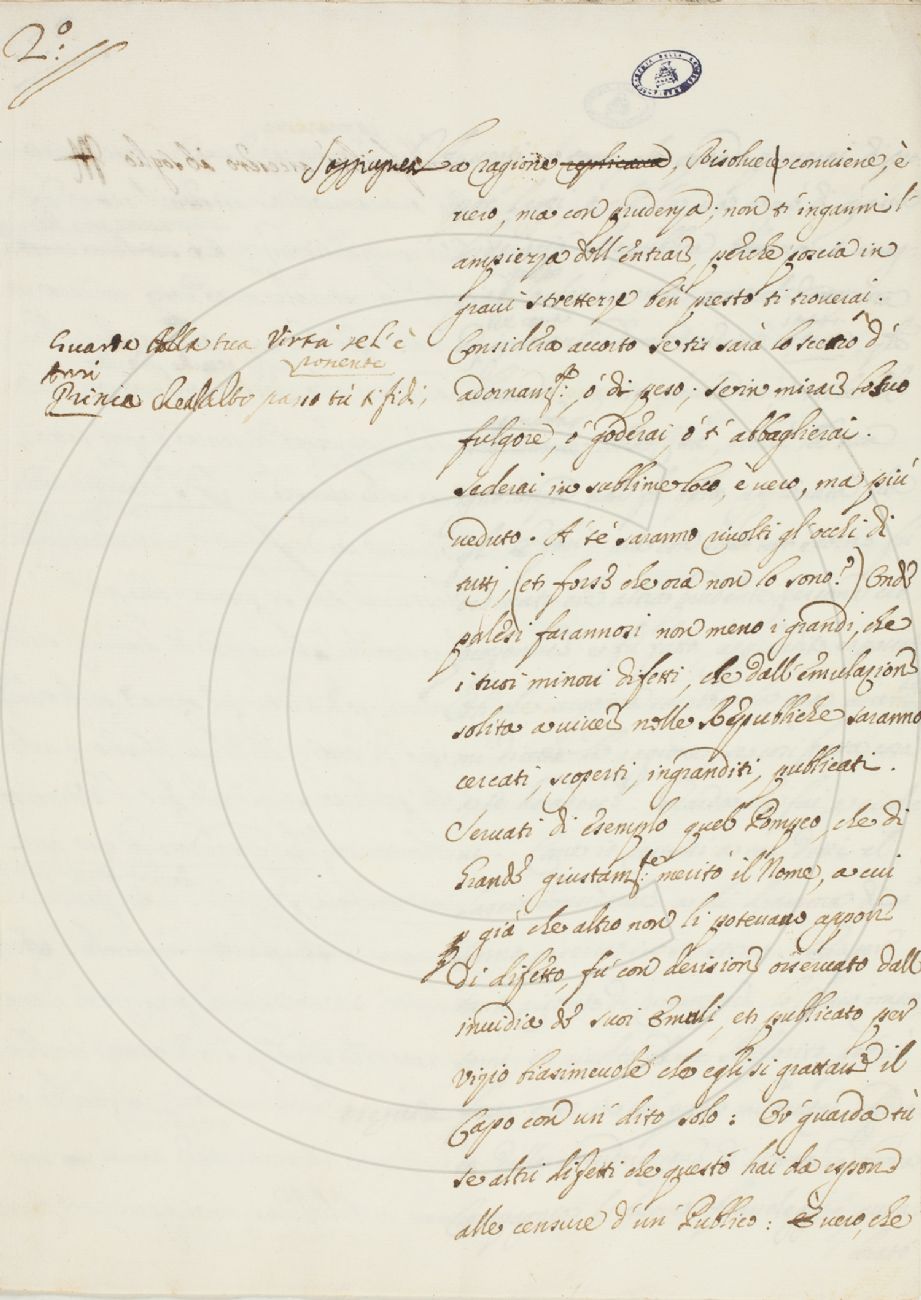 2º:
Soggiugnea La ragione replicava, Risolver conviene, è
vero, ma con prudenza; non ti inganni l'
ampiezza dell'entrar, perche poscia in
gravi strettezze ben presto ti troverai.
Considera accorto se tis sarà lo scetro d'
adornam:to, ó di peso; se in mirar lo suo
fulgore, ó goderai, ó t'abbaglierai.
Sederai in sublime loco, è vero, ma più
veduto. A' té saranno rivolti gl'occhi di
tutti, (et forse che ora non lo sono?) Onde
palesi farannosi non meno i grandi, che
i tuoi minori difetti, che dall'emulazione
solita a viver nelle Republiche saranno
cercati, scoperti, ingranditi, publicati.
Servati di esempio quel Pompeo, che di
Grande giustam:te meritò il Nome, a cui
già che altro non li potevano apporre
di difetto, fú con derisione osservato dall
invidia de suoi Emuli, et publicato per
vizio biasimevole che egli si grattasse il
Capo con un' dito solo: Or' guarda tù
se altri difetti che questo hai da esporre
alle censure d'un' Publico: è vero, che
Guarda della tua Virtù se l'è
ponente
Anzi
Princia
tù ti fidi,